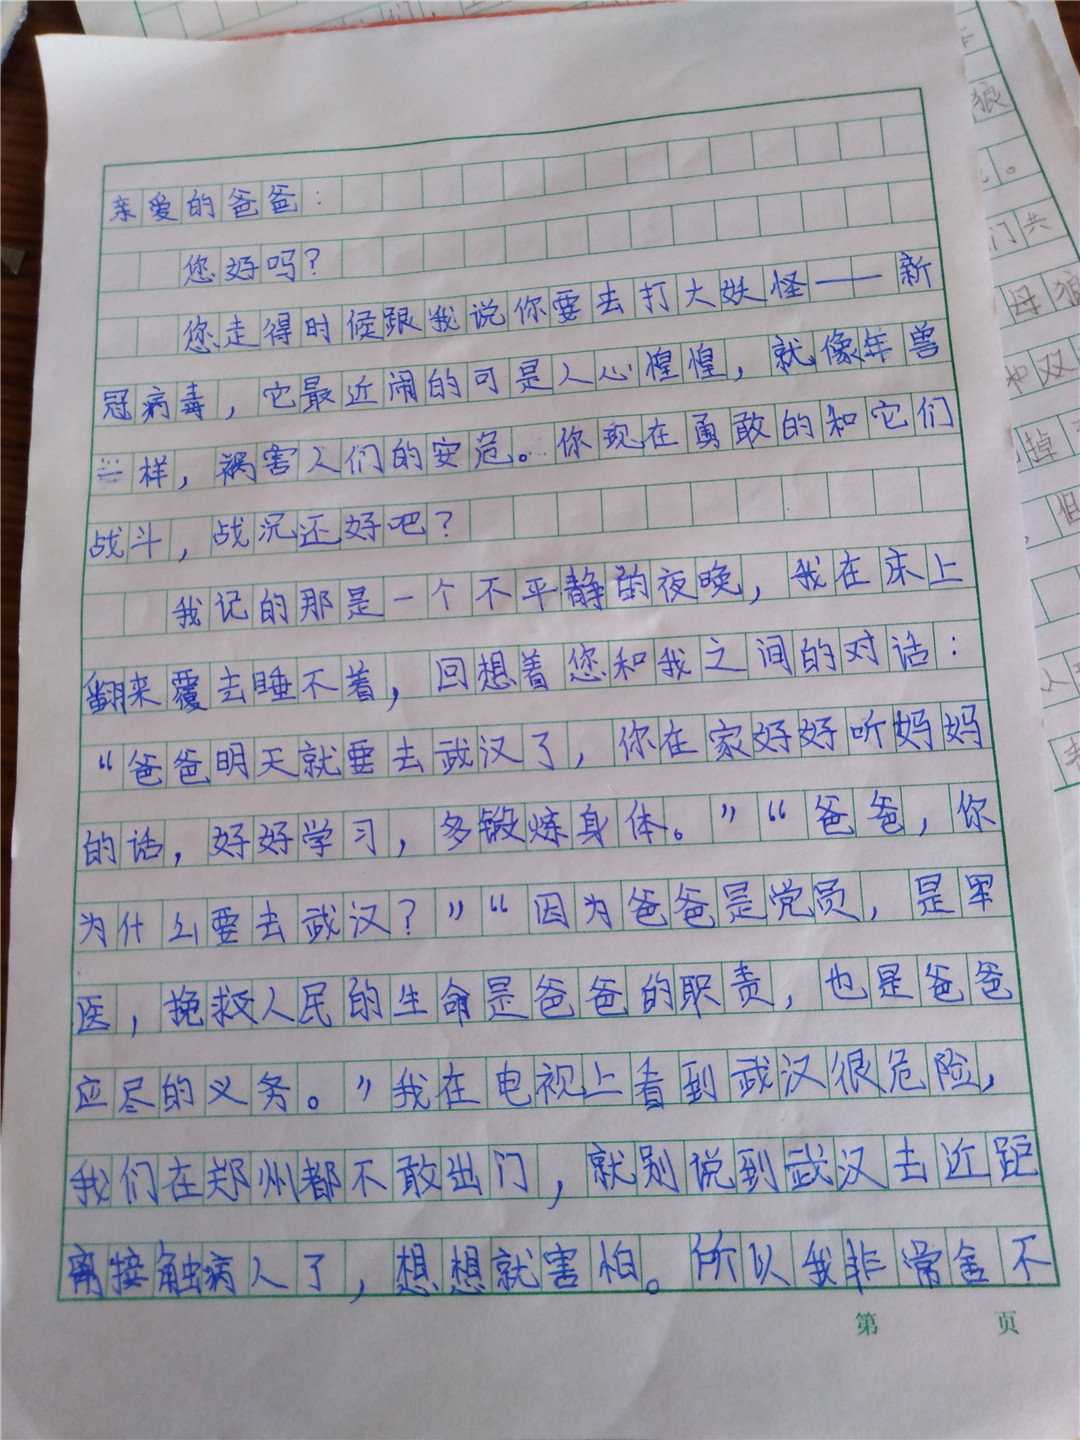 亲爱的爸爸：
您好吗？
您走得时候跟我说你要去打大妖怪——新
冠病毒，它最近闹的可是人心惶惶，就像年兽
一样，祸害人们的安危。你现在勇敢的和它们
战斗，战况还好吧？
我记的那是一个不平静的夜晚，我在床上
翻来覆去睡不着，回想着您和我之间的对话：
“爸爸明天就要去武汉了，你在家好好听妈妈
的话，好好学习，多锻炼身体。”“爸爸，你
为什么要去武汉？”“因为爸爸是党员，是军
医，挽救人民的生命是爸爸的职责，也是爸爸
应尽的义务。”我在电视上看到武汉很危险，
我们在郑州都不敢出门，就别说到武汉去近距
离接触病人了，想想就害怕。所以我非常舍不
第 页
狼
。
们共
母狼
和双
掉
但
人